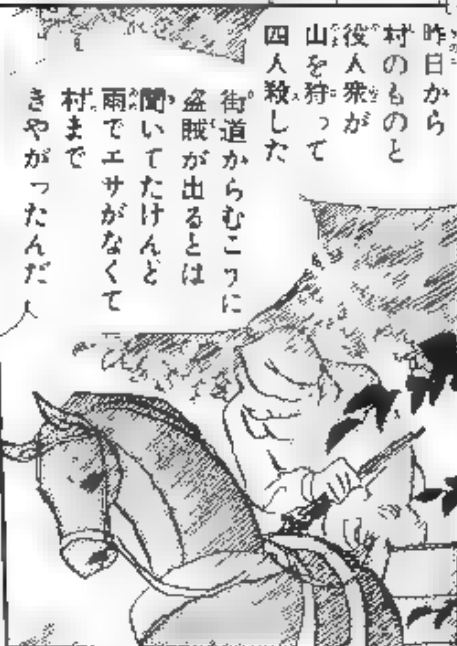 昨日から
村のものと
役人衆が
山を狩って
四人殺した
街道からむこうに
盗賊が出るとは
聞いてたけんど
雨でエサがなくて
村まで
きやがったんだ